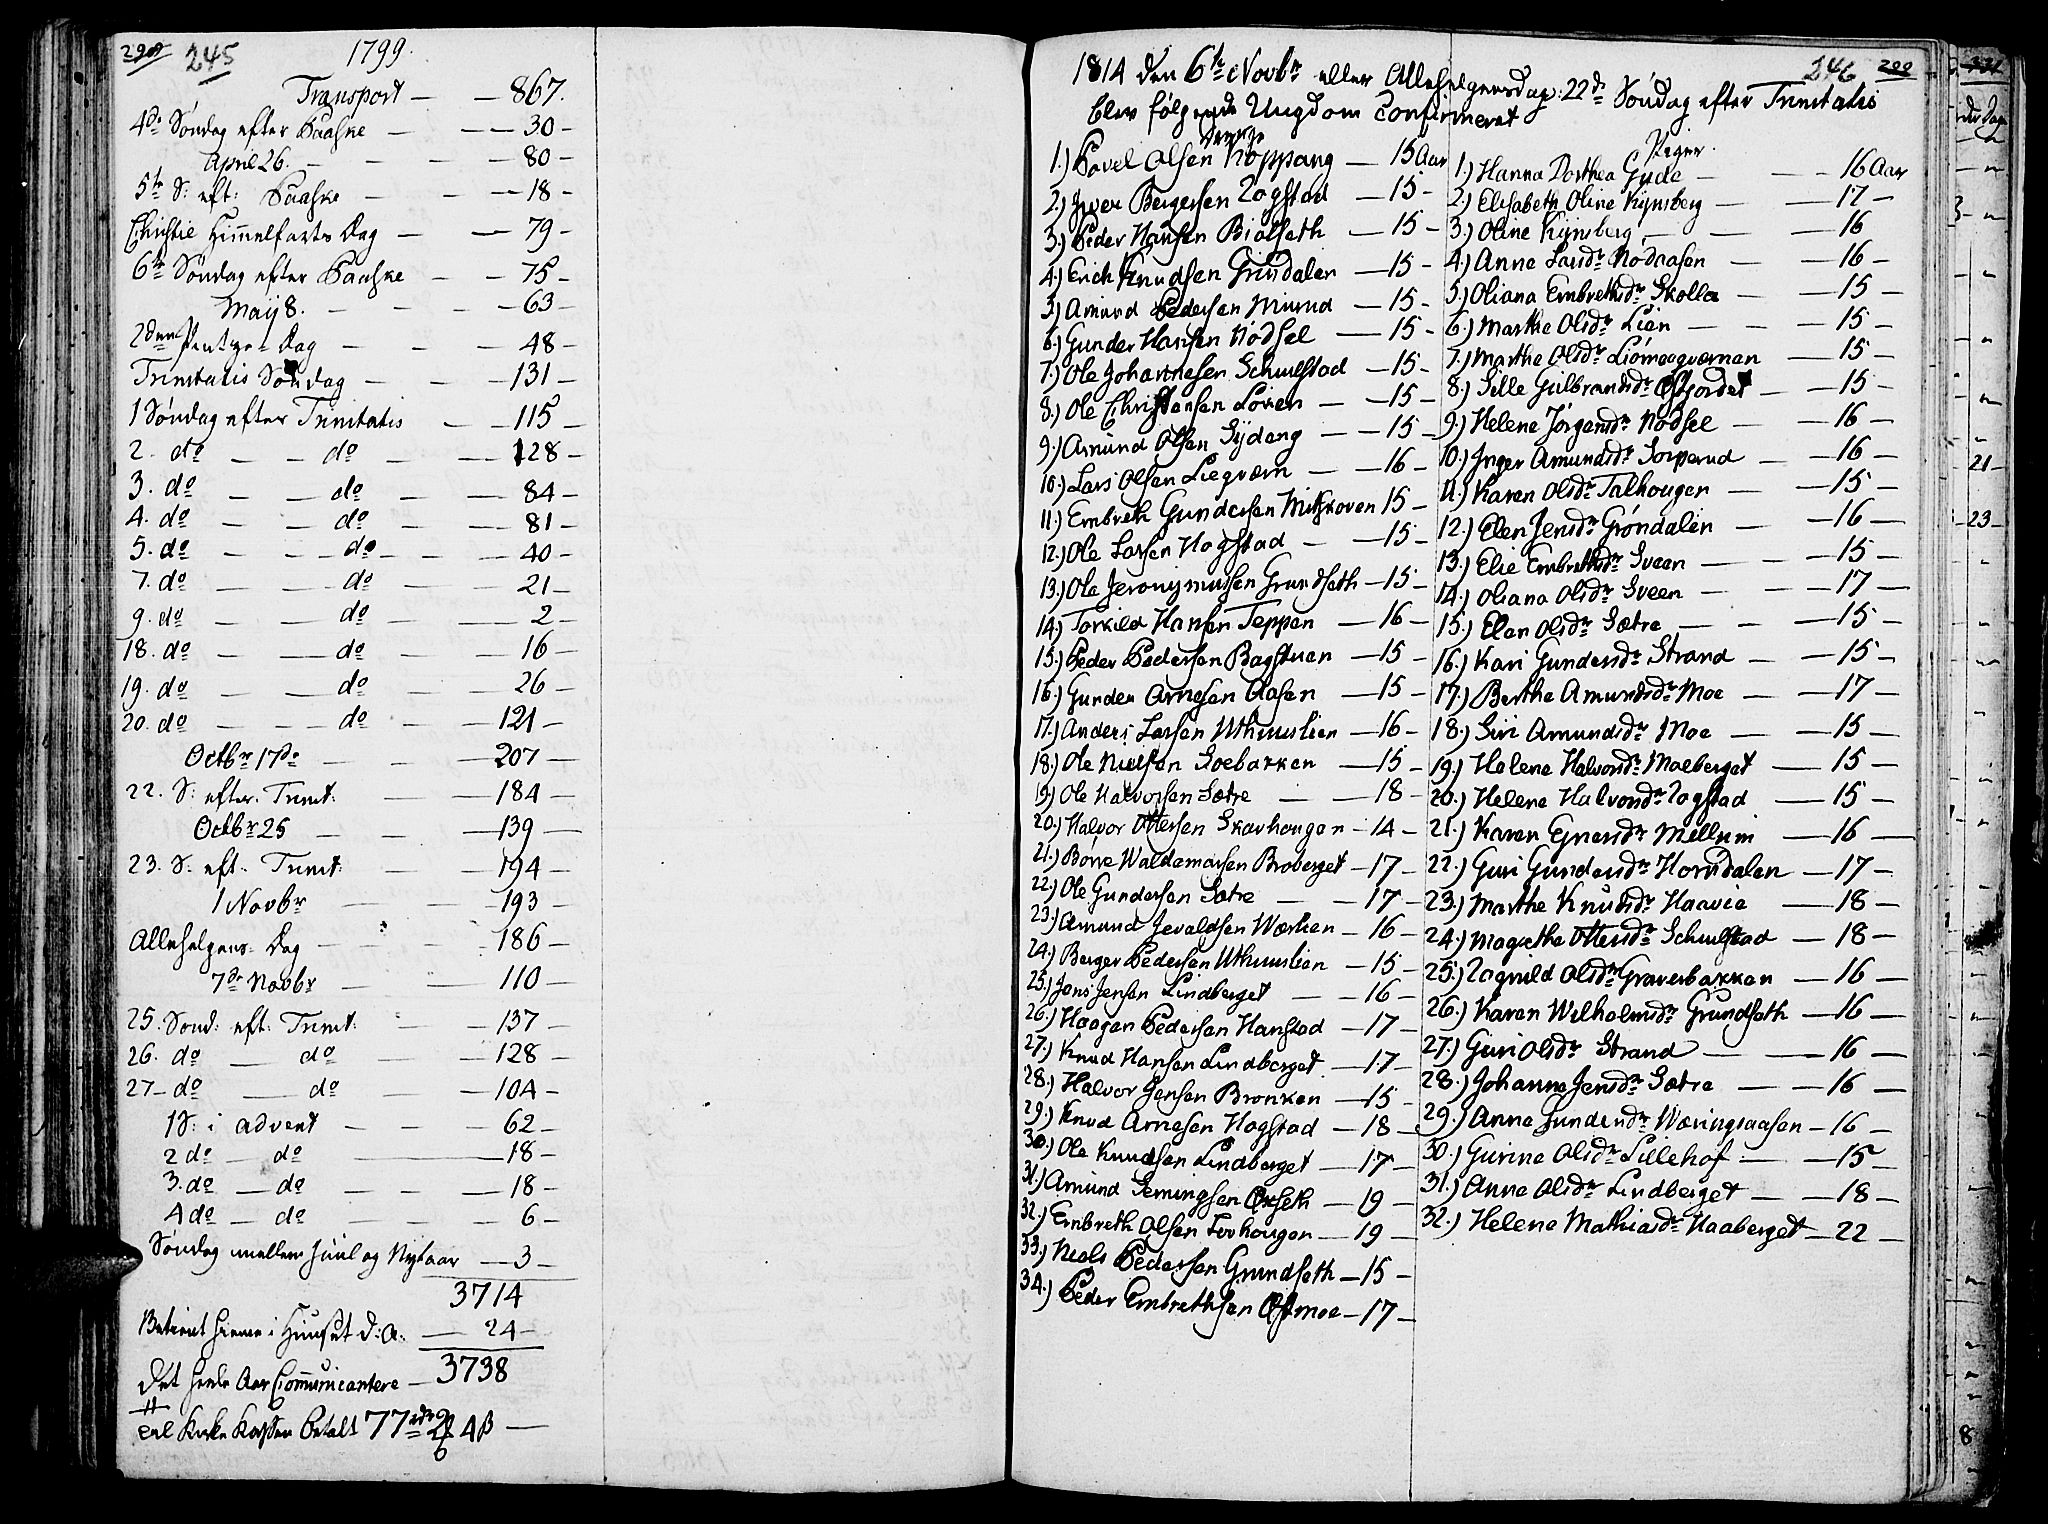 245
1799.
Transport — — 867.
4de Søndag efter Paaske — — — 30 —
April 26. — — — 80 —
5te S: eft: Paaske — — — 18 —
Christie Himmelfarts Dag — — 79 —
6te Søndag efter Paaske — — 75 —
Maij 8. — — — 63 —
2den Pintze-Dag — — — 48 —
Trinitatis Søndag — — — 131 —
1 Søndag efter Trinitatis — — 115 —
2. do — — do — — 128 —
3. do — — do — — 84 —
4. do — — do — — 81 —
5. do — — do — — 40 —
7. do — — do — — 21 —
9. do — — do — — 2 —
18. do — — do — — 16 —
19. do — — do — — 26 —
20. do — — do — — 121 —
Octbr 17de — — — 207 —
22. S: efter Trinit: — — 184 —
Octbr 25 — — — 139 —
23. S: eft. Trinit: — — 194 —
1 Novbr — — 193 —
Allehelgens-Dag — — — 186 —
7de Novbr — — 110 —
25. Sønd: eft: Trinit: — — 137 —
26. do — do — — 128 —
27 — do — do — — 104 —
1 S: i advent — — — 62 —
2 do — do — 18 —
3. do — do — — — 18 —
4 do — do — — — 6 —
Søndag mellem Juul og Nytaar — 3 —
3714
Betient hiemme i Huuset d: A: — 24 —
3738
Det heele Aar Communicantere —
til Kirke Kassen betalt 77 rdr 2 4 β —
246
1814 den 6te Novbr eller Allehelgensdag: 22de Søndag efter Trinitatis
blev følgende Ungdom Confirmeret
Drenge
1.) Povel Olsen Koppang — 15 Aar
2.) Iver Bergersen Rogstad — 15 —
3.) Peder Hansen Biølseth — 15 —
4.) Erich Knudsen Grindalen — 15 —
5.) Amund Pedersen Mürud — 15 —
6.) Gunder Hansen Nodsel — 15 —
7.) Ole Johannesen Schulstad — 15 —
8.) Ole Christensen Løken — 15 —
9.) Amund Olsen Sydeng — 15 —
10.) Lars Olsen Liegværn — 16 —
11.) Embreth Gundersen Mitskoven 15 —
12.) Ole Larsen Hogstad — 15 —
13.) Ole Jeronymussen Grundseth — 15 —
14.) Torkild Hansen Teppen — 16 —
15.) Peder Pedersen Bagstuen — 15 —
16.) Gunder Arnesen Aasen — 15 —
17.) Anders Larsen Uthuuslien — 16 —
18.) Ole Nielsen Goebakken — 15 —
19.) Ole Halvorsen Sætre — 18 —
20.) Halvor Ottersen Skavhougen — 14 —
21.) Børre Waldemarsen Broberget — 17 —
22.) Ole Gundersen Sætre — 17 —
23.) Amund Jevaldsen Wærlien — 16 —
24.) Berger Pedersen Uthuuslien — 15 —
25.) Jens Jensen Lindberget — 16 —
26.) Haagen Pedersen Hanstad — 17 —
27.) Knud Hansen Lindberget — 17 —
28.) Halvor Jensen Bronken — 15 —
29.) Knud Arnesen Hogstad — 18 —
30.) Ole Knudsen Lindberget — 17 —
31.) Amund Semingsen Øxseth — 19 —
32.) Embreth Olsen Lovhougen — 19 —
33.) Niels Pedersen Grundseth — 15 —
34.) Peder Embrethsen Østmoe — 17 —
Piger.
1.) Hanna Dorthea Gyde — 16 Aar
2.) Elisabeth Oline Kynsberg — 17 —
3.) Oline Kynsberg — 16
4.) Anne Larsdr Nodaasen — 16 —
5.) Oliana Embrethsdr Skolla — 15 —
6.) Marthe Olsdr Lien — 15 —
7.) Marthe Olsdr Liømoqværnen — 15 —
8.) Sille Gulbrandsdr Østjordet — 15 —
9.) Helene Jørgensdr Nodsel — 16 —
10.) Inger Amundsdr Sorperud — 16 —
11.) Karen Olsdr Talhougen — 15 —
12.) Elen Jensdr Grøndalen — 16 —
13.) Elie Embrethsdr Sveen — 15 —
14.) Oliana Olsdr Sveen — 17 —
15.) Elen Olsdr Sætre — 15 —
16.) Kari Gundersdr Strand — 15 —
17.) Berthe Amundsdr Moe — 17 —
18.) Siri Amundsdr Moe — 15 —
19.) Helene Halvorsdr Moeberget — 15 —
20.) Helene Halvorsdr Rogstad — 15 —
21.) Karen Ejnersdr Mellum — 16 —
22.) Guri Gundersdr Horndalen — 17 —
23.) Marthe Knudsdr Haavie — 18 —
24.) Magrethe Ottersdr Schulstad — 18 —
25.) Rognild Olsdr Graverbakken — 16 —
26.) Karen Wilhelmsdr Grundseth — 16 —
27.) Guri Olsdr Strand — 16 —
28.) Johanne Jensdr Sætre — 16 —
29.) Anne Gundersdr Wæringsaasen — 16 —
30.) Gurine Olsdr Lillehof — 15 —
31.) Anne Olsdr Lindberget — 18 —
32.) Helene Mathiasdr Haaberget — 22 —
21 —
23 —
8